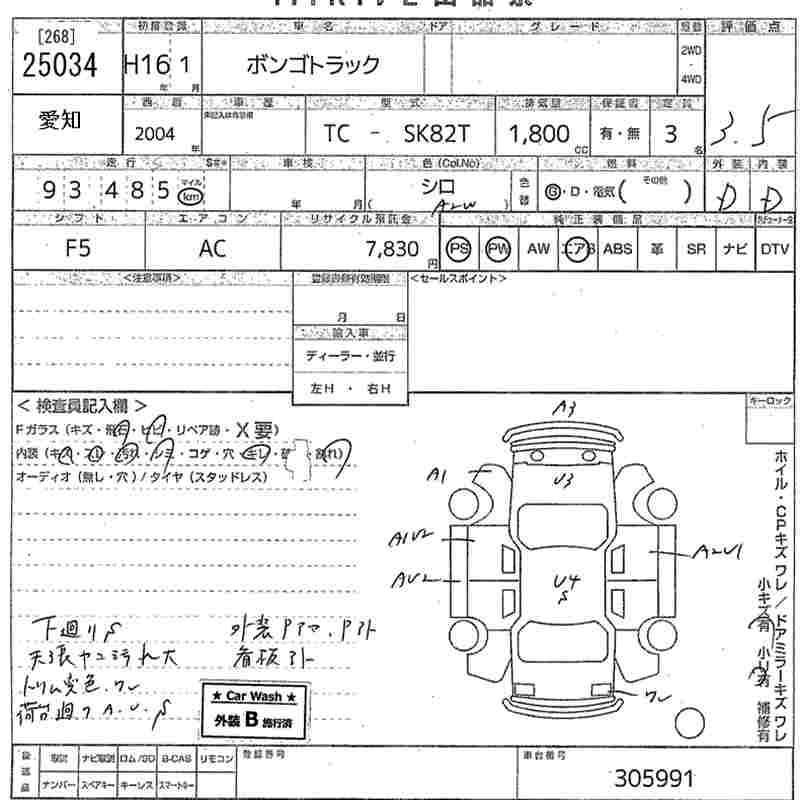 [268]
25034
初度登録
H16 1
年 月
車名
ボンゴトラック
ドア
グレード
駆動
2WD
4WD
評価点
3.5
愛知
西暦
2004
年
車歴
型式
TC - SK82T
排気量
1,800
CC
保証書
有・無
定員
3
名
走行
93 485
マイル
km
車検
年 月
色(Col.No)
シロ
A2W
色替
燃料
G・D・電気( その他 )
外装
D
内装
D
シフト
F5
エアコン
AC
リサイクル預託金
7,830
円
純正装備品
PS PW AW エアB ABS 革 SR ナビ DTV
<注意事項>
月 日
輸入車
ディーラー・並行
左H ・ 右H
<セールスポイント>
<検査員記入欄>
Fガラス(キズ・飛石・ヒビ・リペア跡・X要)
内装(キズ・スレ・汚れ・シミ・コゲ・穴・キレ・ 割れ)
オーディオ(無し・穴)/タイヤ(スタッドレス)
キーロック
A3
A1
U3
A1U2
A2U1
AU2
U4
S
ワレ
ホイル・CPキズ ワレ/ドアミラーキズ ワレ
小キズ有 小U有 補修有
下廻りS
外装
看板
荷台廻り A.U.S
★ Car Wash ★
外装 B 施行済
後送品
取説 ナビ取説 ロム/SD B-CAS リモコン
ナンバー スペアキー キーレス スマートキー
登録番号
車台番号
305991